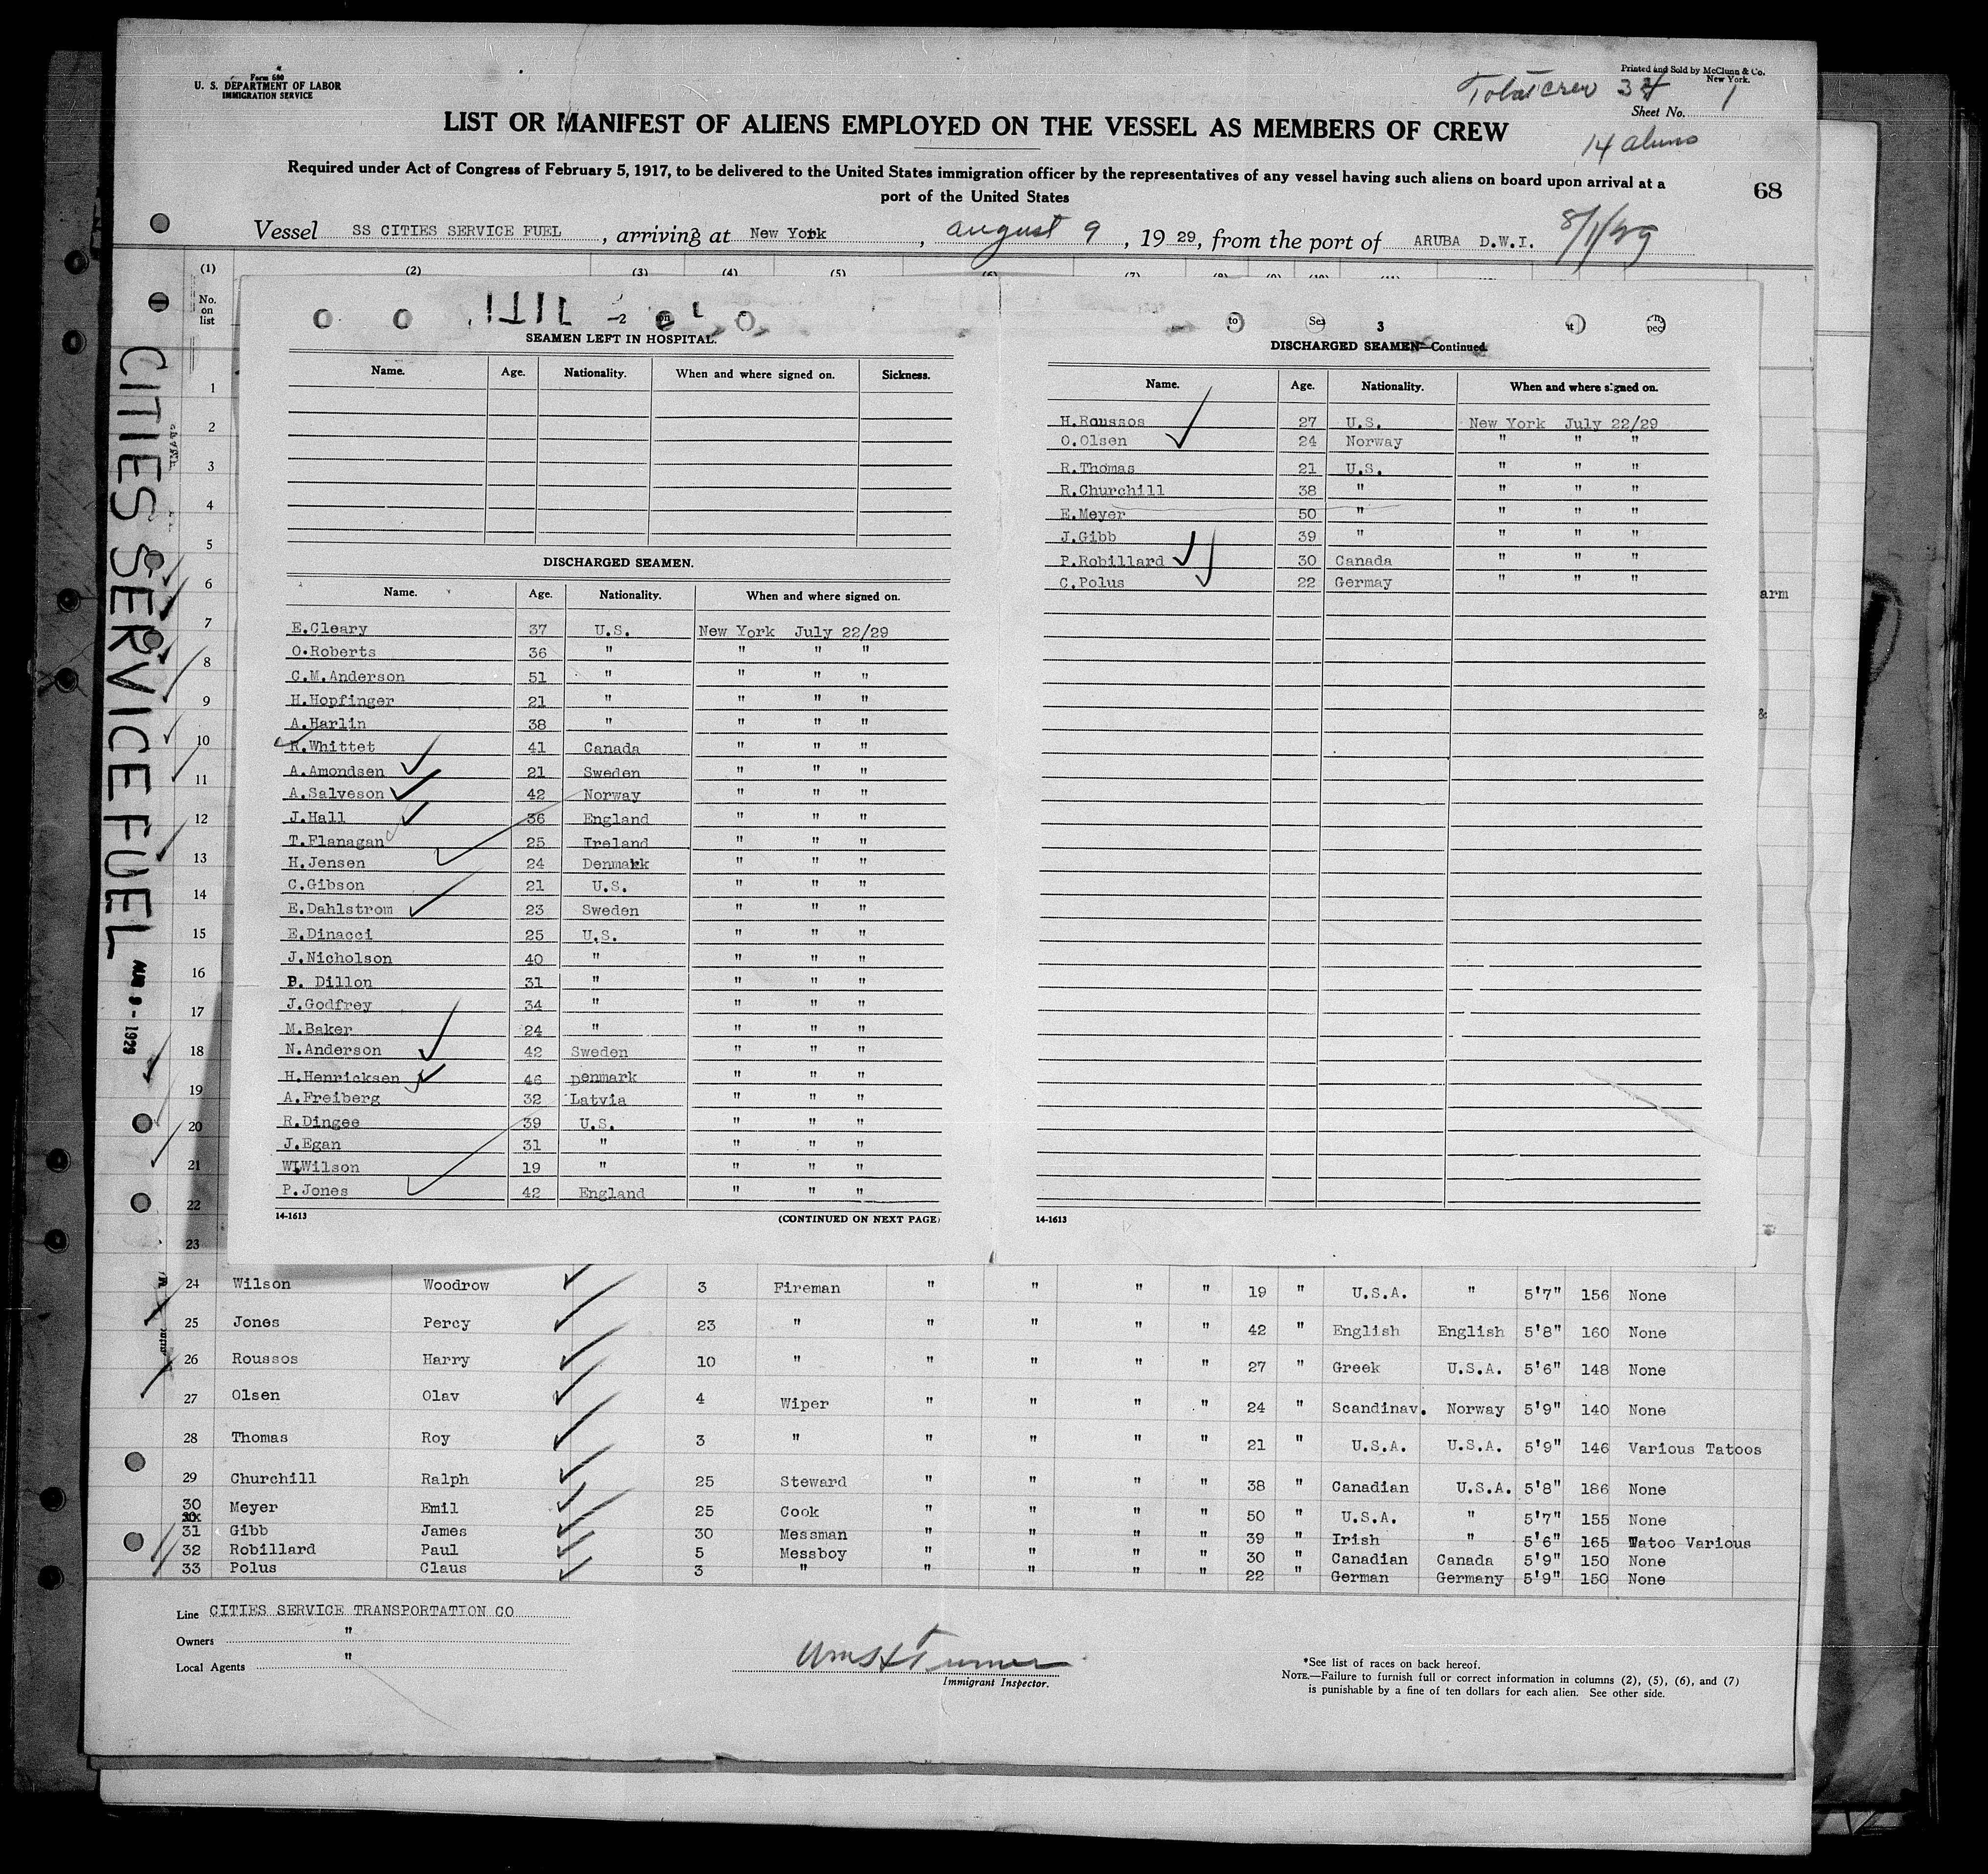 Form 680
U. S. DEPARTMENT OF LABOR
IMMIGRATION SERVICE
Printed and Sold by McClunn & Co.
New York.
Total crew 34
Sheet No. 1
14 aliens
LIST OR MANIFEST OF ALIENS EMPLOYED ON THE VESSEL AS MEMBERS OF CREW
Required under Act of Congress of February 5, 1917, to be delivered to the United States immigration officer by the representatives of any vessel having such aliens on board upon arrival at a
port of the United States
68
Vessel SS CITIES SERVICE FUEL, arriving at New York, august 9, 19 29, from the port of ARUBA D.W.I. 8/1/29
(1) (2) (3) (4) (5) (6) (7)
No. on list
CITIES SERVICE FUEL
AUG 9 - 1929
1
2
3
4
5
6
7
8
9
10
11
12
13
14
15
16
17
18
19
20
21
22
23
2
SEAMEN LEFT IN HOSPITAL.
Name. Age. Nationality. When and where signed on. Sickness.
DISCHARGED SEAMEN.
Name. Age. Nationality. When and where signed on.
E.Cleary 37 U.S. New York July 22/29
O.Roberts 36 " " " "
C.M.Anderson 51 " " " "
H.Hopfinger 21 " " " "
A.Harlin 38 " " " "
R.Whittet 41 Canada " " "
A.Amondsen 21 Sweden " " "
A.Salveson 42 Norway " " "
J.Hall 36 England " " "
T.Flanagan 25 Ireland " " "
H.Jensen 24 Denmark " " "
C.Gibson 21 U.S. " " "
E.Dahlstrom 23 Sweden " " "
E.Dinacci 25 U.S. " " "
J.Nicholson 40 " " " "
P. Dillon 31 " " " "
J.Godfrey 34 " " " "
M.Baker 24 " " " "
N.Anderson 42 Sweden " " "
H.Henricksen 46 Denmark " " "
A.Freiberg 32 Latvia " " "
R.Dingee 39 U.S. " " "
J.Egan 31 " " " "
W.Wilson 19 " " " "
P.Jones 42 England " " "
14-1613 (CONTINUED ON NEXT PAGE)
3
DISCHARGED SEAMEN—Continued.
Name. Age. Nationality. When and where signed on.
H.Roussos 27 U.S. New York July 22/29
O.Olsen 24 Norway " " "
R.Thomas 21 U.S. " " "
R.Churchill 38 " " " "
E.Meyer 50 " " " "
J.Gibb 39 " " " "
P.Robillard 30 Canada " " "
C.Polus 22 Germay " " "
14-1613
arm
&
24 Wilson Woodrow 3 Fireman " " " " 19 " U.S.A. " 5'7" 156 None
25 Jones Percy 23 " " " " " 42 " English English 5'8" 160 None
26 Roussos Harry 10 " " " " " 27 " Greek U.S.A. 5'6" 148 None
27 Olsen Olav 4 Wiper " " " " 24 " Scandinav. Norway 5'9" 140 None
28 Thomas Roy 3 " " " " " 21 " U.S.A. U.S.A. 5'9" 146 Various Tatoos
29 Churchill Ralph 25 Steward " " " " 38 " Canadian U.S.A. 5'8" 186 None
30 Meyer Emil 25 Cook " " " " 50 " U.S.A. " 5'7" 155 None
31 Gibb James 30 Messman " " " " 39 " Irish " 5'6" 165 Tatoo Various
32 Robillard Paul 5 Messboy " " " " 30 " Canadian Canada 5'9" 150 None
33 Polus Claus 3 " " " " " 22 " German Germany 5'9" 150 None
Line CITIES SERVICE TRANSPORTATION CO
Owners "
Local Agents "
Wm H Turner
Immigrant Inspector.
*See list of races on back hereof.
NOTE.—Failure to furnish full or correct information in columns (2), (5), (6), and (7)
is punishable by a fine of ten dollars for each alien. See other side.